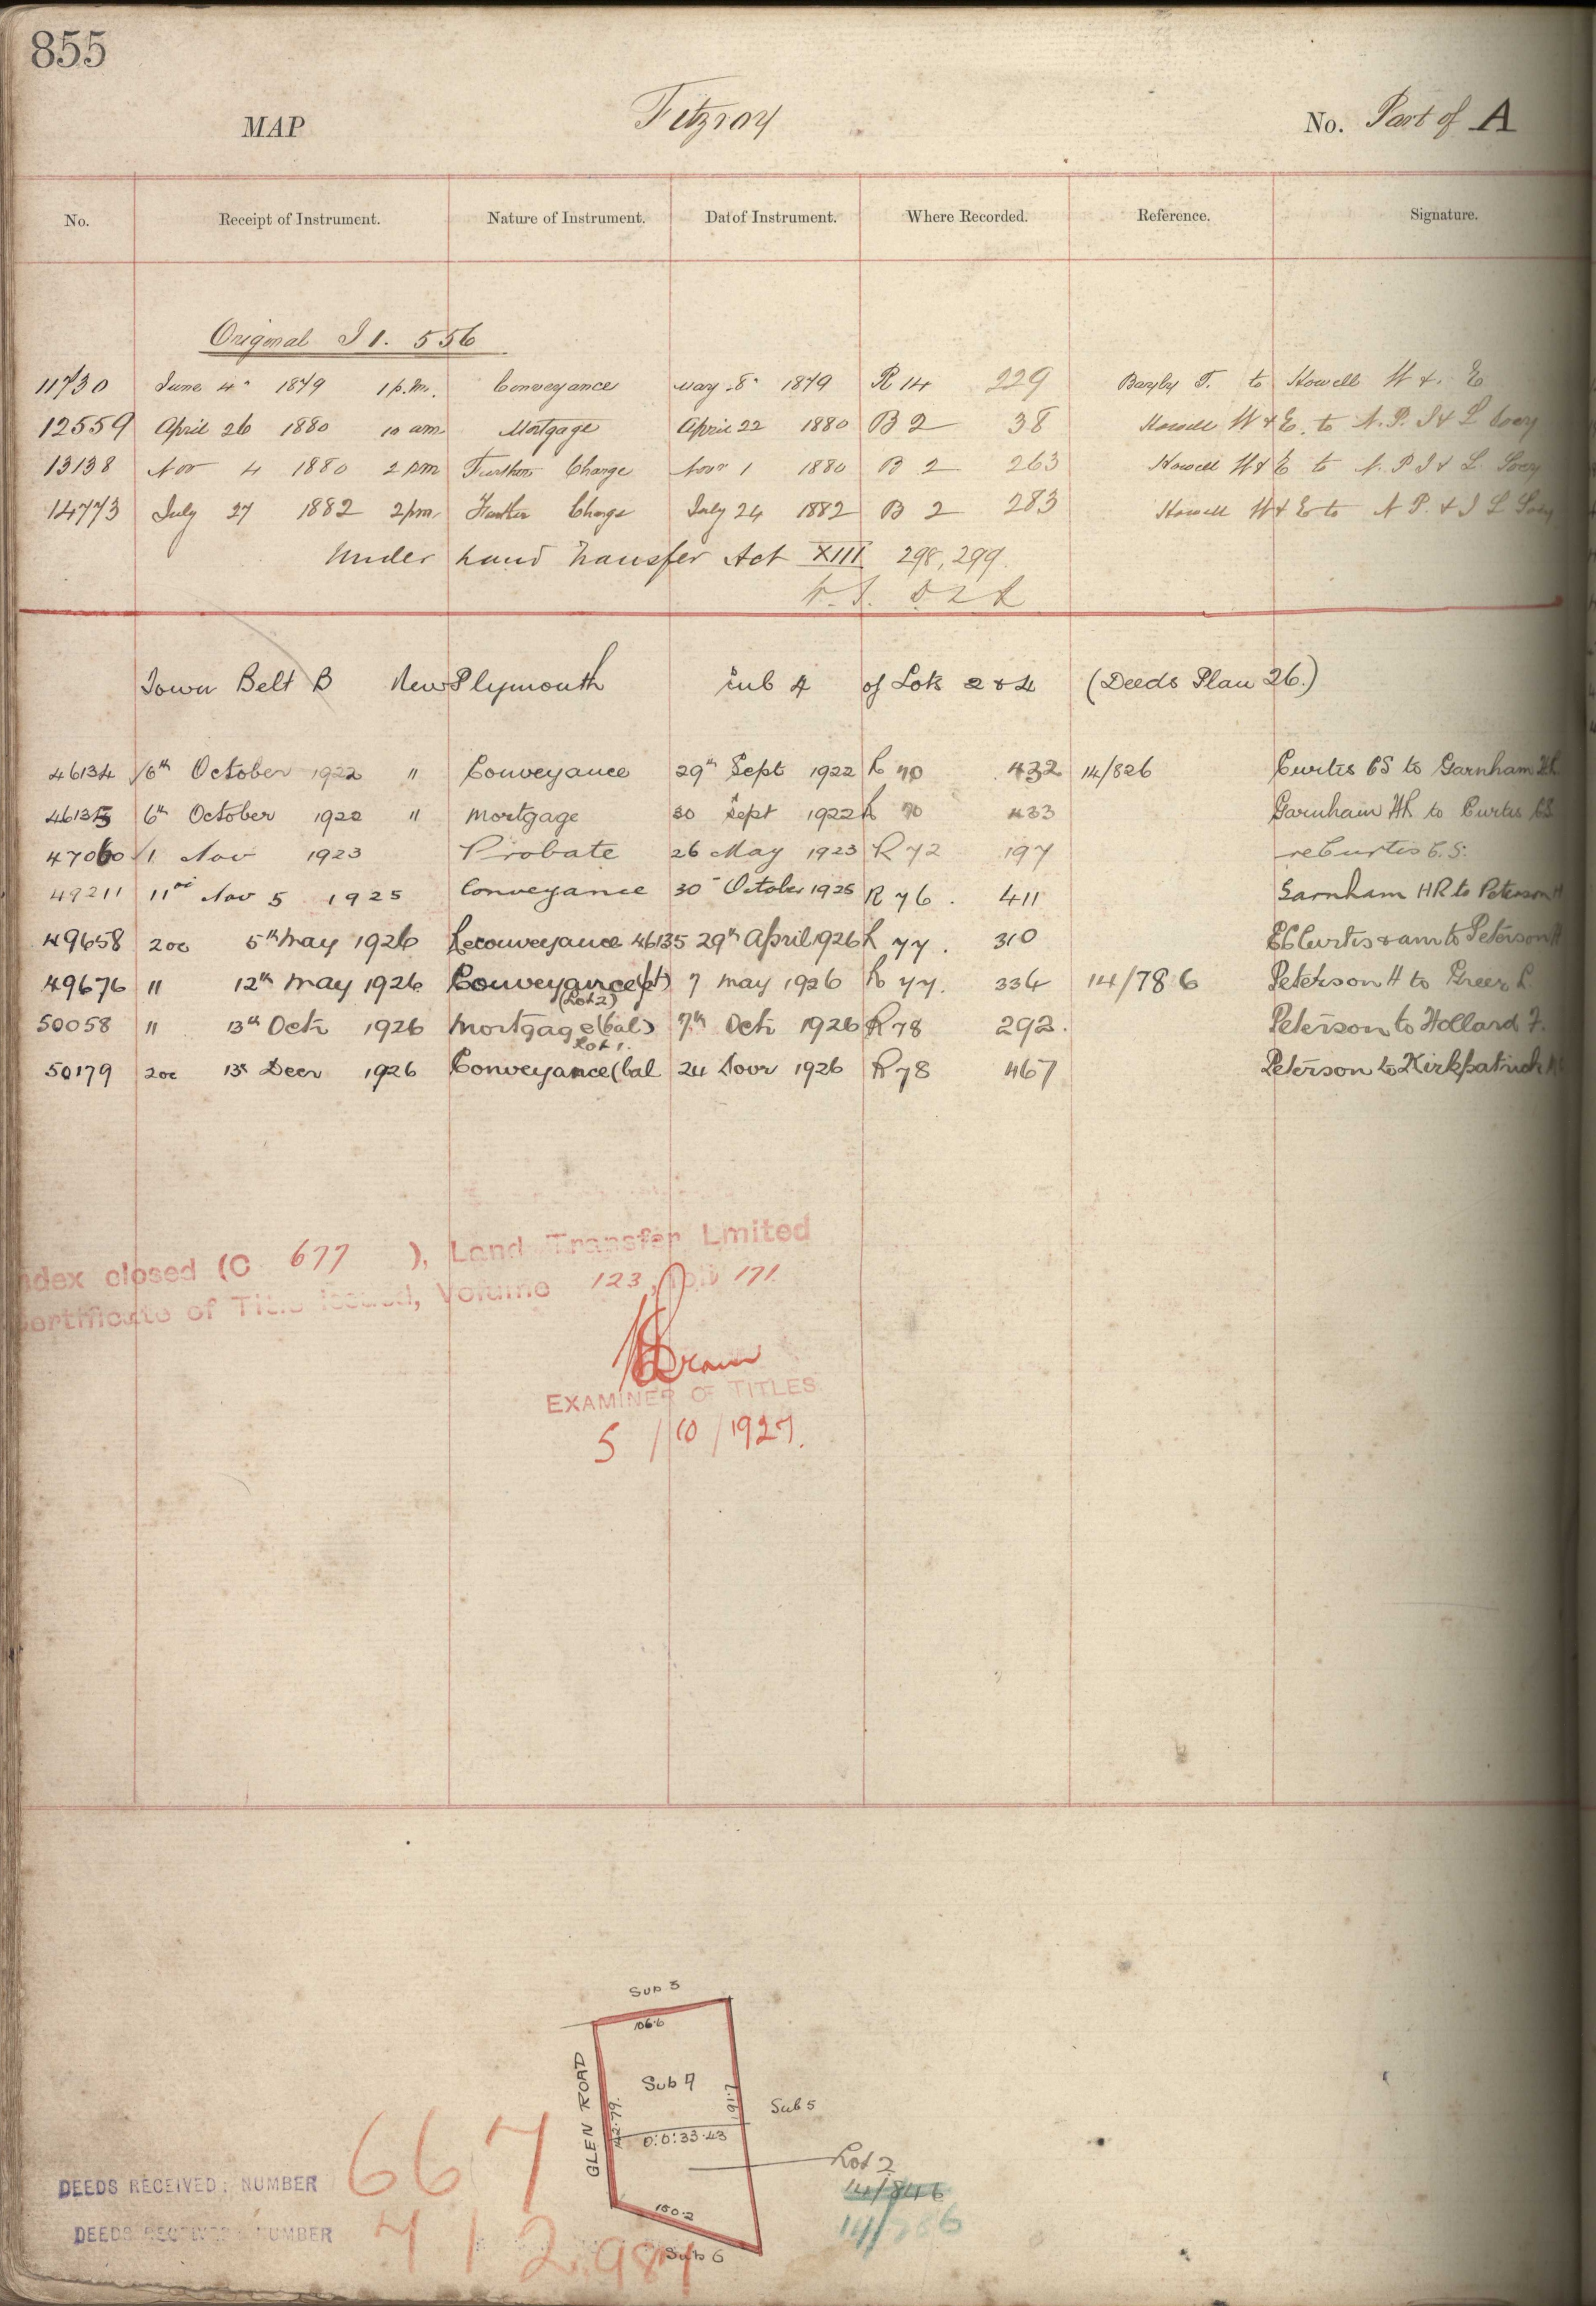 855
MAP Fitzroy No. Part of A
No. Receipt of Instrument. Nature of Instrument. Dat of Instrument. Where Recorded. Reference. Signature.
Original I 1. 556
11730 June 4" 1879 1 p.m. Conveyance May 8" 1879 R 14 229 Bayly T. to Howell W & E
12559 April 26 1880 10 am Mortgage April 22 1880 B 2 38 Howell W & E. to N. P. I & L Socy
13138 Nov 4 1880 2 pm Further Charge Novr 1 1880 B 2 263 Howell W & E to N. P I & L Socy
14773 July 27 1882 2 pm Further Charge July 24 1882 B 2 283 Howell W & E to N P. & I L Socy
Under Land Transfer Act XIII 298, 299.
D L R
Town Belt B New Plymouth Sub 4 of Lots 2 & 4 (Deeds Plan 26.)
46134 6th October 1922 " Conveyance 29th Sept 1922 R 70 432 14/826 Curtis C S to Garnham
46135 6th October 1922 " Mortgage 30 Sept 1922 R 70 433 Garnham to Curtis C S
47060 1 Nov 1923 Probate 26 May 1923 R 72 197 re Curtis C. S.
49211 11 oc Nov 5 1925 Conveyance 30 October 1925 R 76. 411 Garnham HR to Peterson H
49658 2oc 5th May 1926 Reconveyance 46135 29th April 1926 R 77. 310 Curtis & anr to Peterson H
49676 " 12th May 1926 Conveyance (pt) 7 May 1926 R 77. 334 14/786 Peterson H to Greer
(Lot 2)
50058 " 13th Octr 1926 Mortgage (bal) 7th Octr 1926 R 78 292. Peterson to Hollard F.
Lot 1.
50179 2oc 13 Decr 1926 Conveyance (bal 24 Novr 1926 R 78 467 Peterson to Kirkpatrick
ndex closed (C 677 ), Land Transfer Lmited
ertificate of Title issued, Volume 123, folio 171.
EXAMINER OF TITLES
5/10/1927.
Sub 3
106.6
GLEN ROAD
Sub 7
142.79.
191.7
Sub 5
0:0:33.43
Lot 2
14/846
14/786
150.2
Sub 6
DEEDS RECEIVED: NUMBER 667
DEEDS RECEIVED: NUMBER 712.987